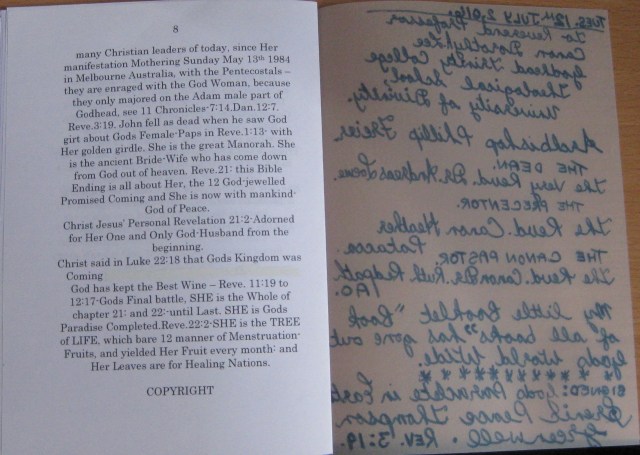 8
many Christian leaders of today, since Her
manifestation Mothering Sunday May 13th 1984
in Melbourne Australia, with the Pentecostals –
they are enraged with the God Woman, because
they only majored on the Adam male part of
Godhead, see 11 Chronicles-7:14,Dan.12:7.
Reve.3:19. John fell as dead when he saw God
girt about Gods Female-Paps in Reve.1:13- with
Her golden girdle. She is the great Manorah. She
is the ancient Bride-Wife who has come down
from God out of heaven. Reve.21: this Bible
Ending is all about Her, the 12 God-jewelled
Promised Coming and She is now with mankind-
God of Peace.
Christ Jesus' Personal Revelation 21:2-Adorned
for Her One and Only God-Husband from the
beginning.
Christ said in Luke 22:18 that Gods Kingdom was
Coming
God has kept the Best Wine – Reve. 11:19 to
12:17-Gods Final battle, SHE is the Whole of
chapter 21: and 22:-until Last. SHE is Gods
Paradise Completed.Reve.22:2-SHE is the TREE
of LIFE, which bare 12 manner of Menstruation-
Fruits, and yielded Her Fruit every month: and
Her Leaves are for Healing Nations.
COPYRIGHT
TUES. 12TH JULY 2,016.
To Reverend Professor
Canon Dorothy Lee
Godhead Trinity College
Theological School.
University of Divinity.
Archbishop Phillip Freier.
THE DEAN.
The Very Revd. Dr. Andreas Loewe.
THE PRECENTOR.
The Revd. Canon Heather
Patacca.
THE CANON PASTOR.
The Revd. Canon Dr. Ruth Redpath.
AO/
My little Booklet "Book
of all books" has gone out
gods world wide.
SIGNED: Gods in East
Pence Thompson
Greenwell. REV. 3:19.